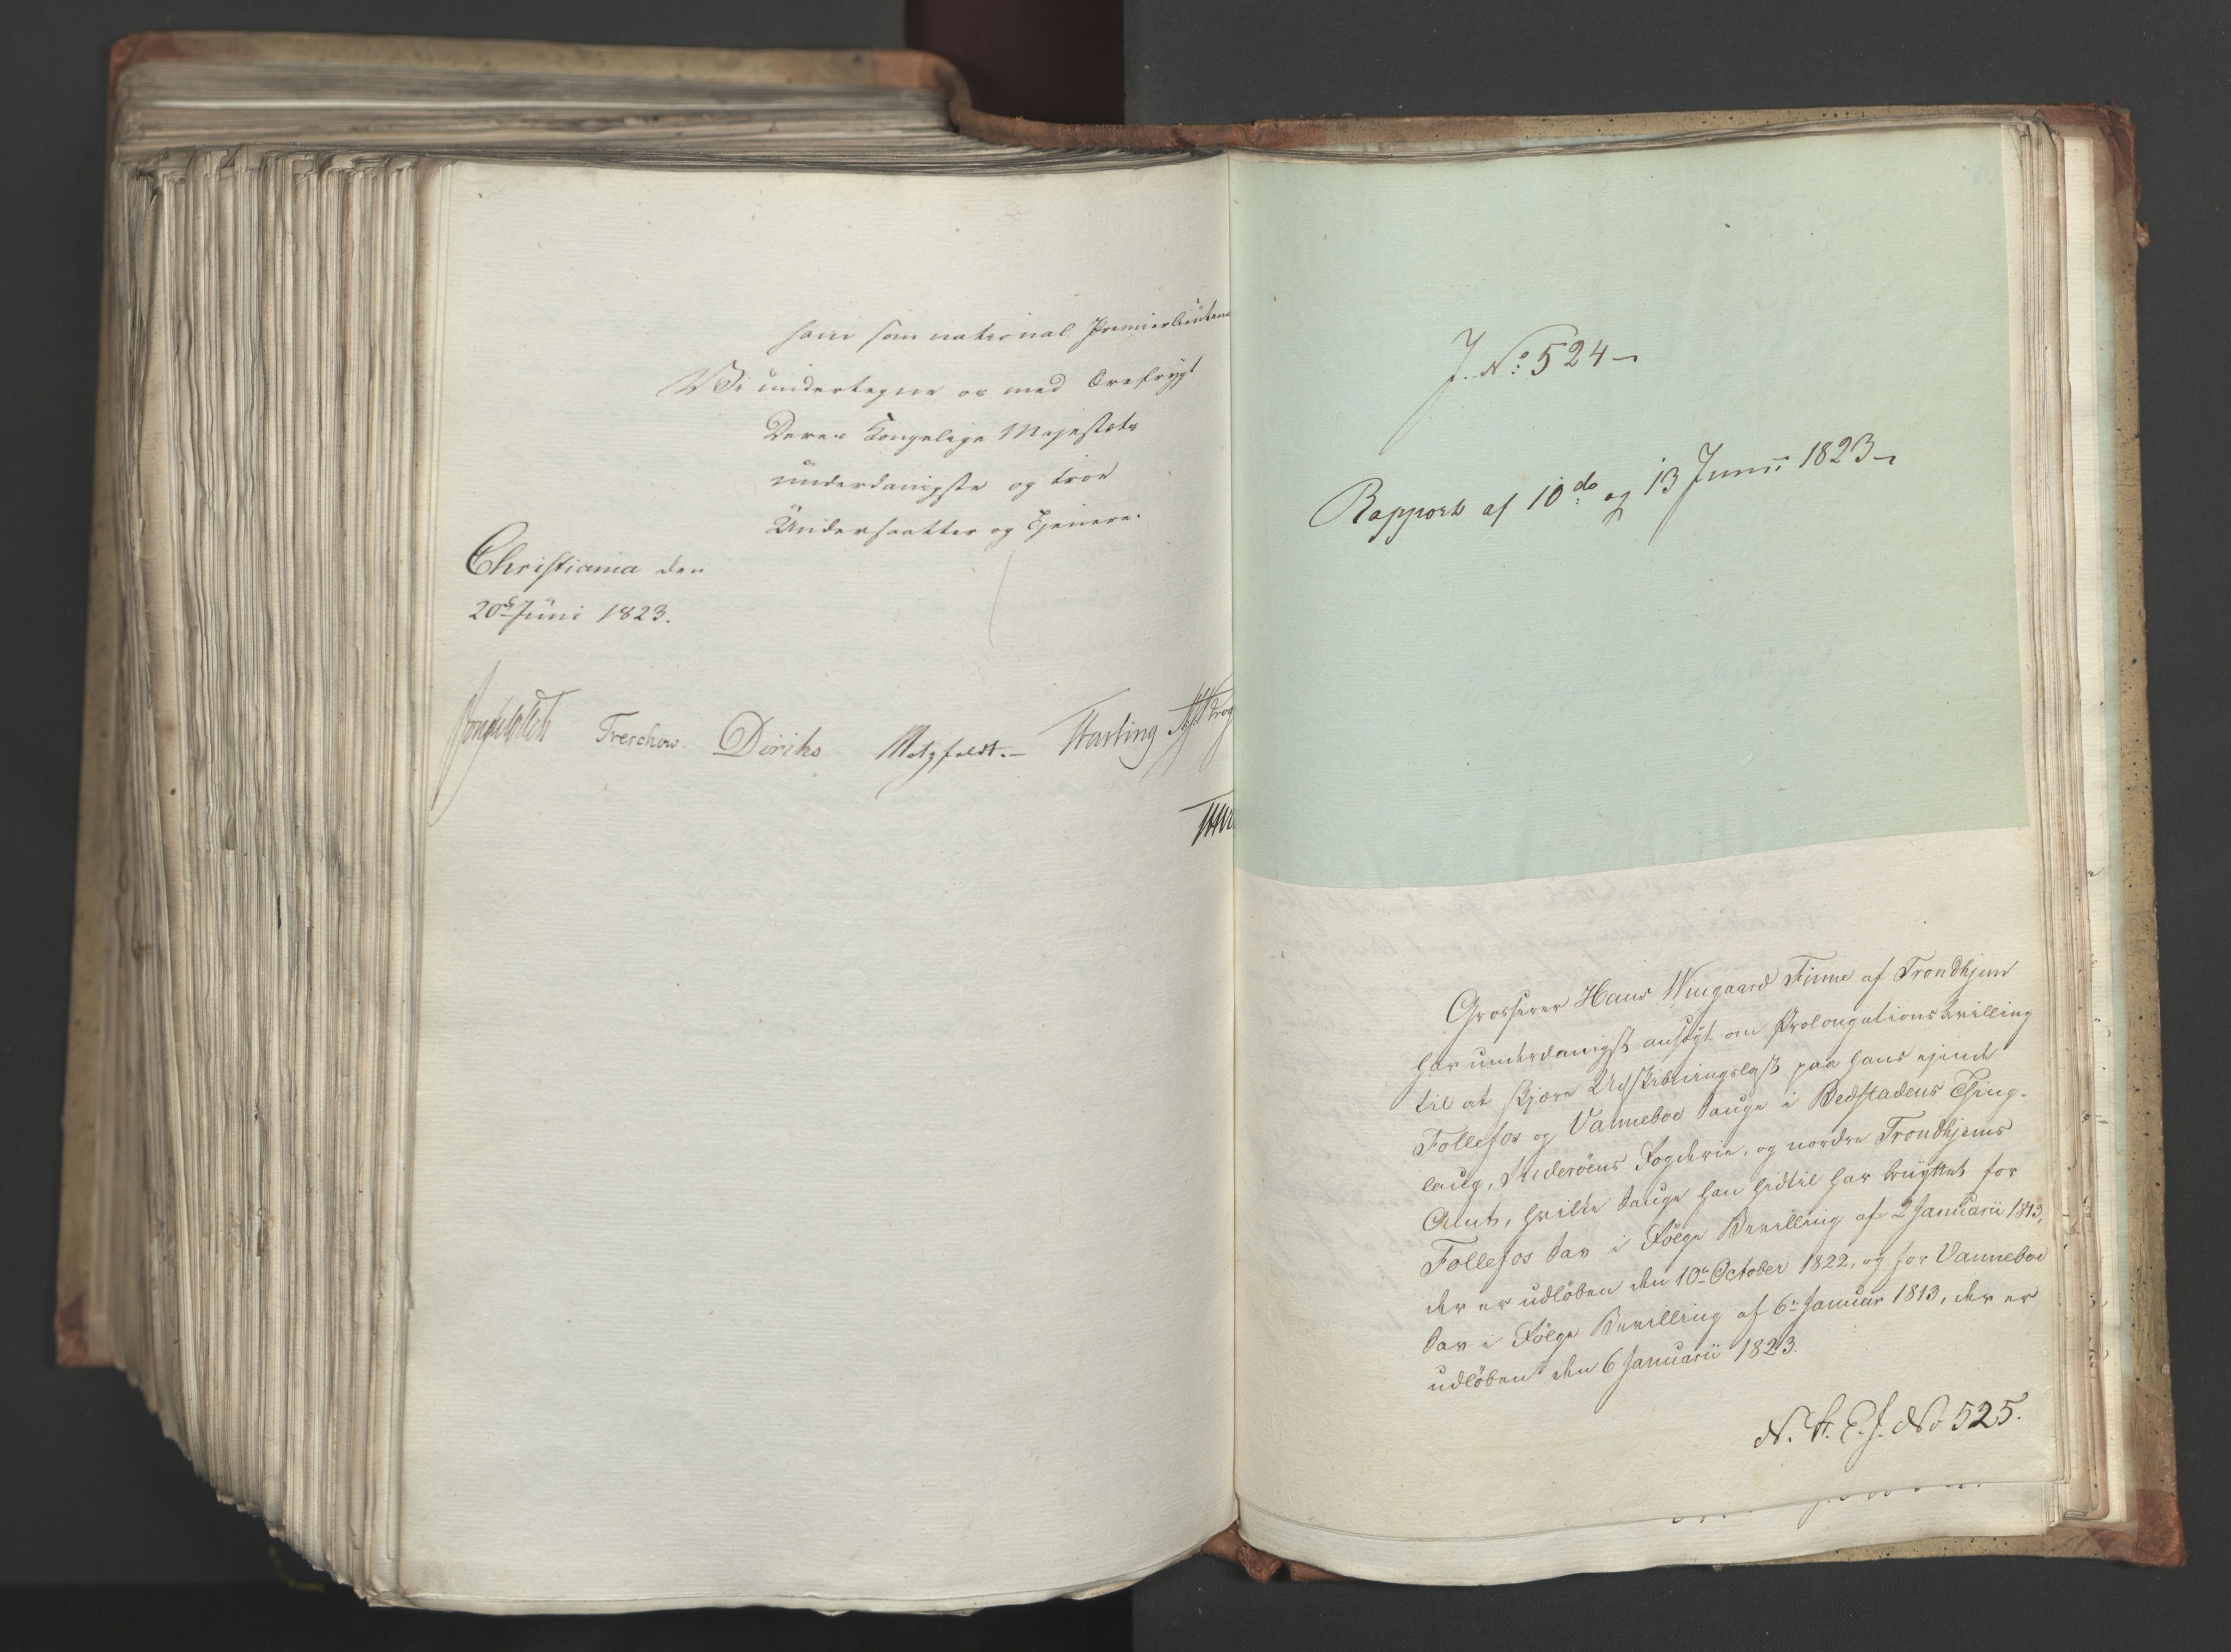 ham som national Premierlieutena
Vi undertegne os med Ærefrygt
Deres Kongelige Majestæts
underdanigste og troe
Undersaatter og Tjenere.
Christiania den
20de Juni 1823.
Treschow. Diriks Motzfeldt.- Harting
J. No: 524
Rapport af 10de og 13 Junii 1823
Grosserer Hans Wingaard Finne af Trondhjem
har underdanigst ansögt om Prolongationsbevilling
til at skjære Udskibningslast paa hans ejende
Follefos og Vanneboe Sauge i Bedstadens Thing-
laug, Inderöens Fogderie, og nordre Trondhjems
Amt, hvilke Sauge han hidtil har benyttet for
Follefos Sav i Fölge Bevilling af 2 Januarii 1813,
der er udlöben den 10de October 1822, og for Vanneboe
Sav i Fölge Bevilling af 6te Januar 1813, der er
udlöben den 6 Januarii 1823.
No 525.